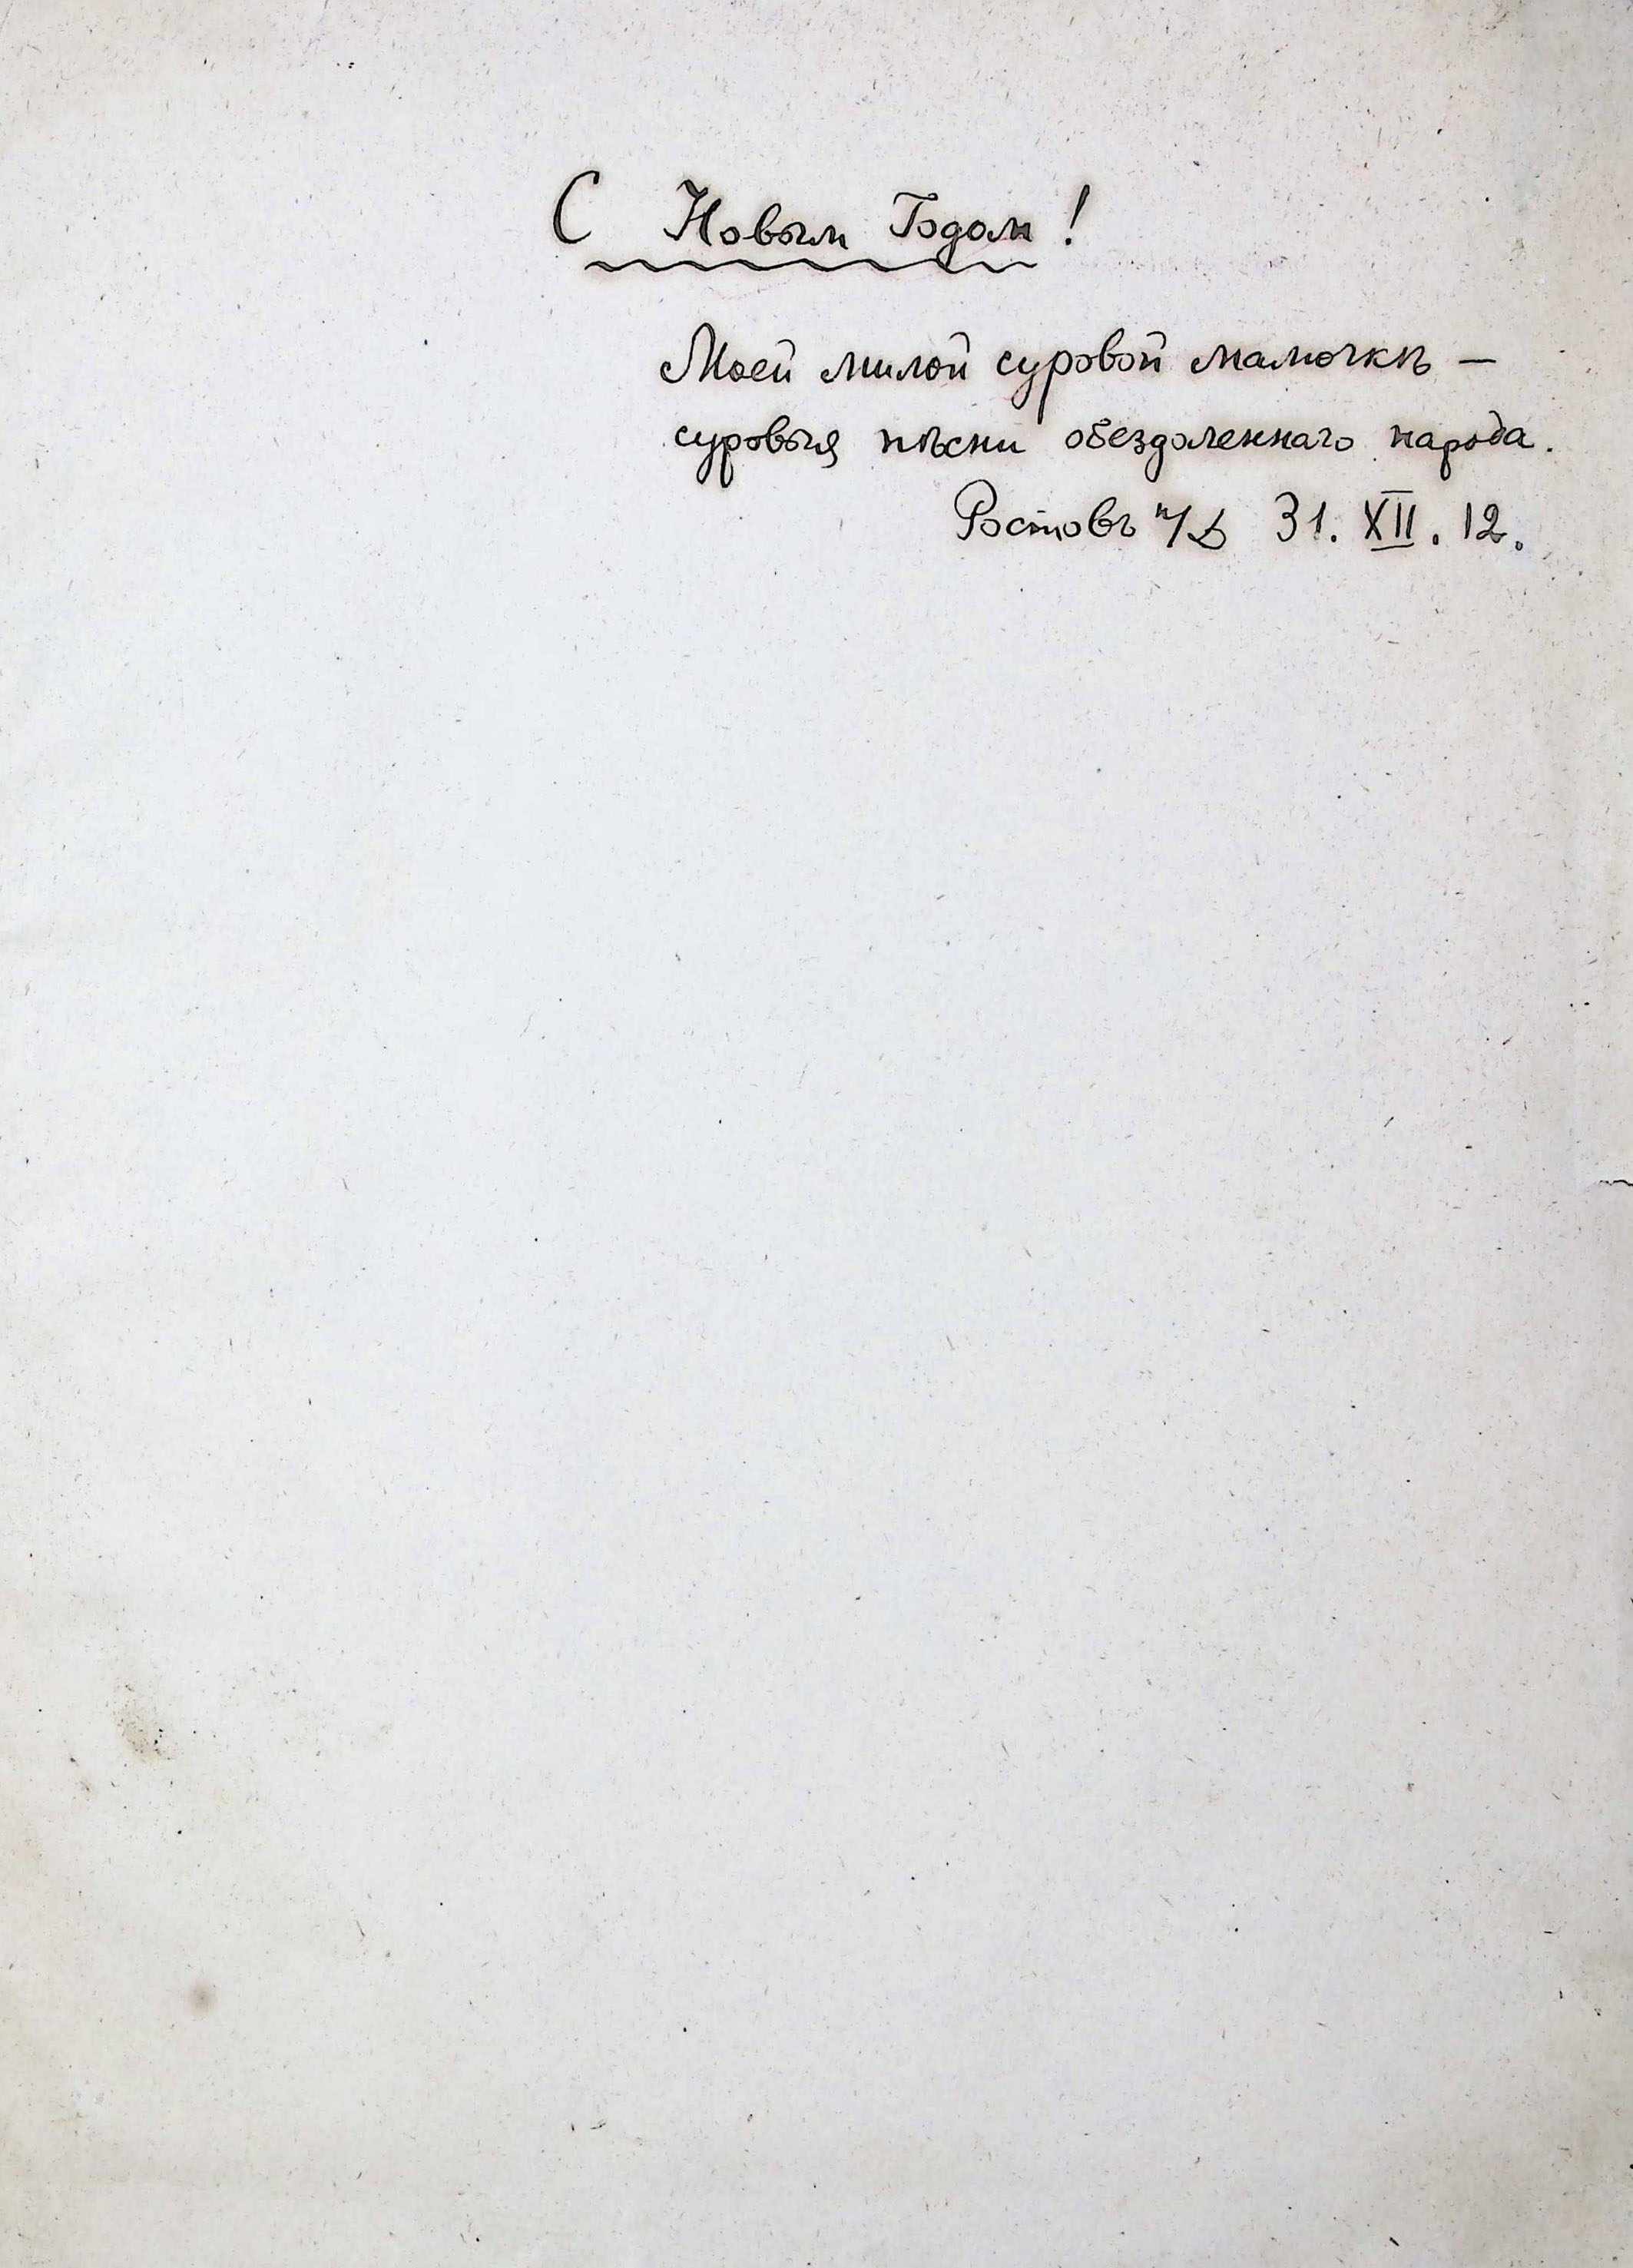 С Новым Годом!
Моей милой суровой мамочкѣ —
суровыя пѣсни обездоленнаго народа.
Ростовъ н/Д 31. XII. 12.